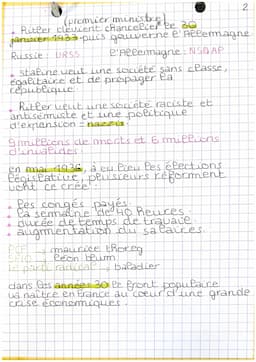 2
(premier ministre)
• Hitler devient chancelier le 30
janvier 1933 puis gouverne l'Allemagne
Russie : URSS l'Allemagne : NSDAP
• staline veut une société sans classe,
égalitaire et de propager la
république
• Hitler veut une société raciste et
antisémiste et une politique
d'expansion = nazis
9 millions de morts et 6 millions
d'invalides
en mai 1936, à eu lieu les élections
législative, plusieurs réforment
vont ce crée :
• les congés payés.
• la semaine de 40 heures.
• durée de temps de travail.
• augmentation du salaires.
PCF → maurice thorez
SFIO → léon blum
le parti radical → daladier
dans les années 30 le front populaire
va naître en france au cœur d'une grande
crise économiques.